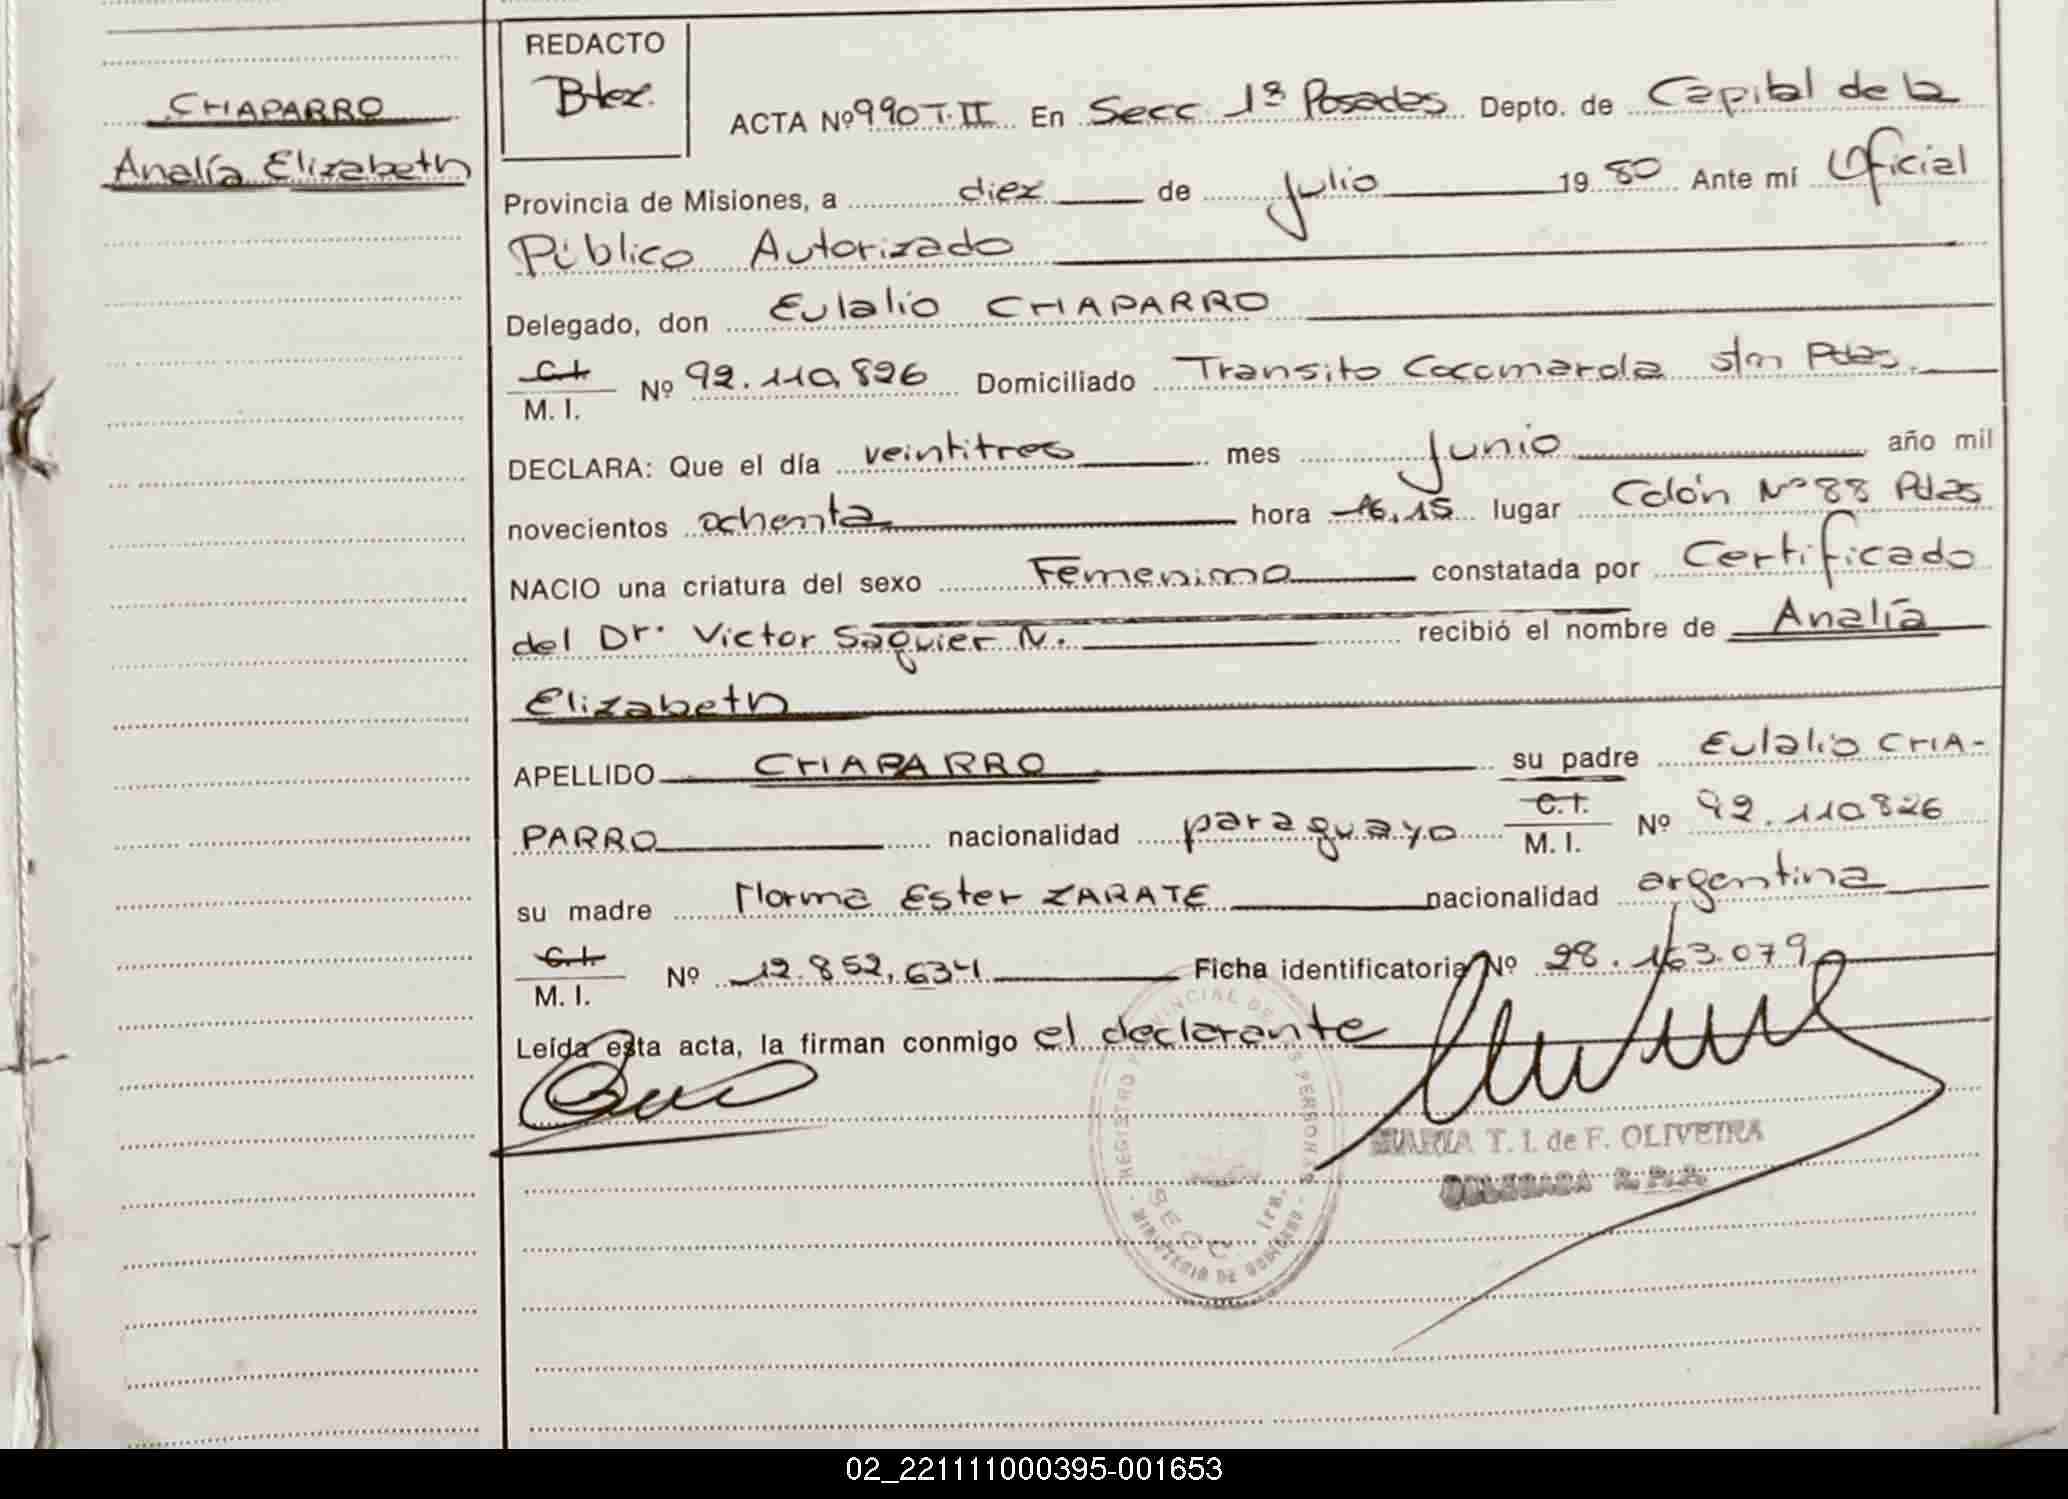 CHAPARRO
Analía Elizabeth
REDACTO
Btez.
ACTA Nº 990 T.II En Secc 1ª Posadas Depto. de Capital de la
Provincia de Misiones, a diez de Julio 19 80 Ante mí Oficial
Público Autorizado
Delegado, don Eulalio CHAPARRO
C.I.
M. I. Nº 92.110.826 Domiciliado Transito Cocomarola s/n Pdas.
DECLARA: Que el día veintitres mes Junio año mil
novecientos ochenta hora 16,15 lugar Colón Nº 88 Pdas
NACIO una criatura del sexo Femenino constatada por Certificado
del Dr. Victor Saguier N. recibió el nombre de Analía
Elizabeth
APELLIDO CHAPARRO su padre Eulalio CHA-
PARRO nacionalidad paraguayo C.I. M. I. Nº 92.110826
su madre Norma Ester ZARATE nacionalidad argentina
C.I.
M. I. Nº 12.852.634 Ficha identificatoria Nº 28.163.079
Leída esta acta, la firman conmigo el declarante
REGISTRO PROVINCIAL DE LAS PERSONAS
SECC. 1ra.
MINISTERIO DE GOBIERNO
MARIA T. I. de F. OLIVEIRA
DELEGADA R. P. P.
02_221111000395-001653